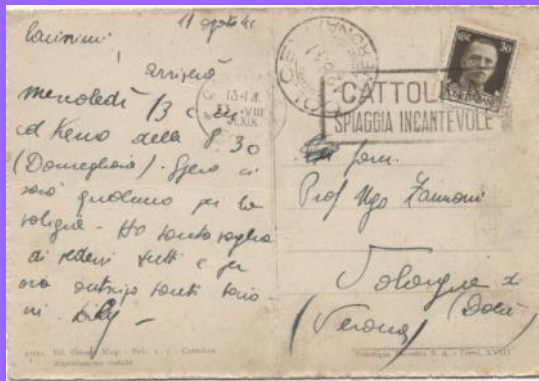 11 agosto 41
Carissimi
arriverò
mercoledì 13 c.
col treno delle 8.30
(Domegliara). Spero ci
sarà qualcuno per la
valigia - Ho tanta voglia
di vedervi tutti e per
ora anticipo tanti baci
ni. Lily -
CATTOLI
SPIAGGIA INCANTEVOLE
13-14
VIII
XIX
30
fam.
Prof Ugo Zannoni
Volargne
(Dolcè)
(Verona)
Ed. Cattolica
Riproduzione vietata
S. A. - Terni, XVIII